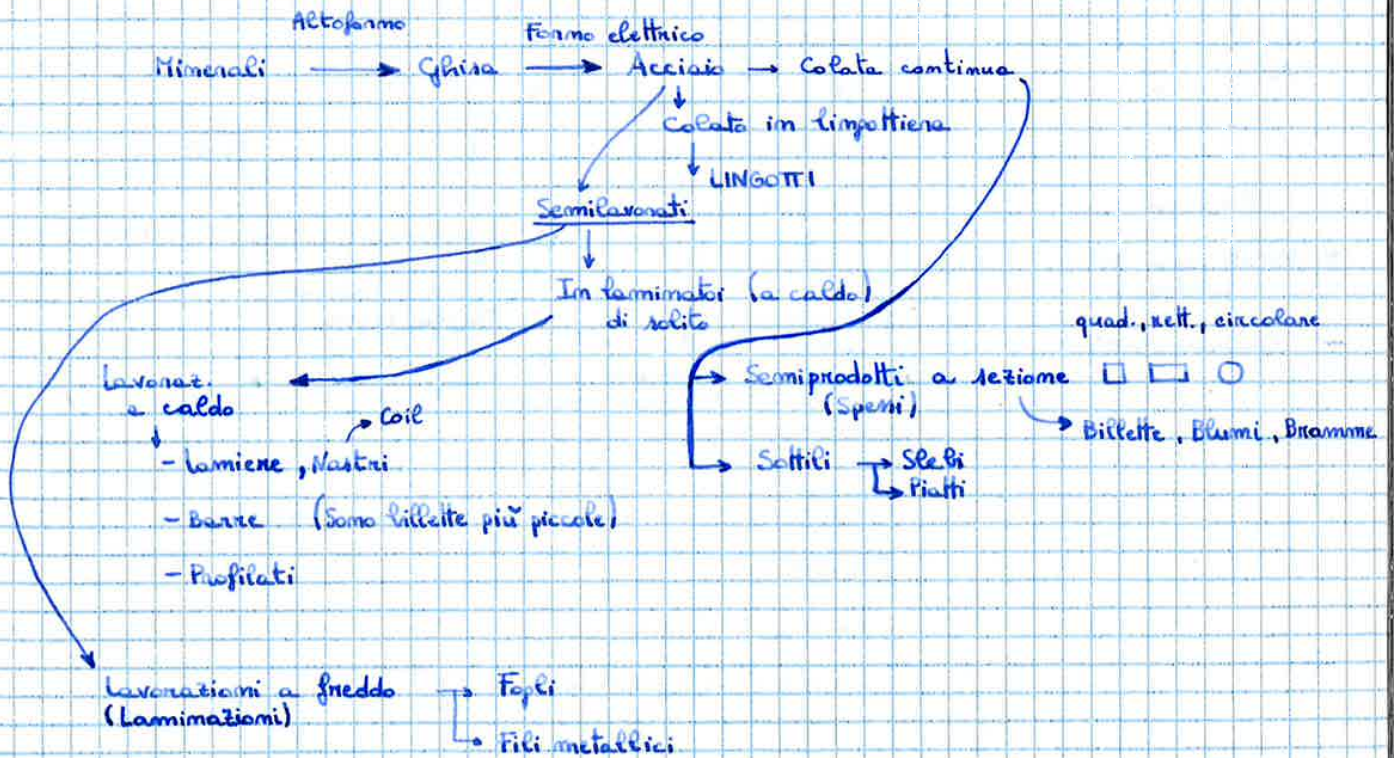 Altoforno
Forno elettrico
Minerali → Ghisa → Acciaio → Colata continua
Colata in lingottiera
LINGOTTI
Semilavorati
In laminatoi (a caldo)
di solito
quad., rett., circolare
Lavoraz.
a caldo
Semiprodotti a sezione
(Spessi)
Billette, Blumi, Bramme
Coil
- Lamiere, Nastri
Sottili → Slebi
Piatti
- Barre (Sono billette più piccole)
- Profilati
Lavorazioni a freddo → Fogli
(Laminazioni)
Fili metallici